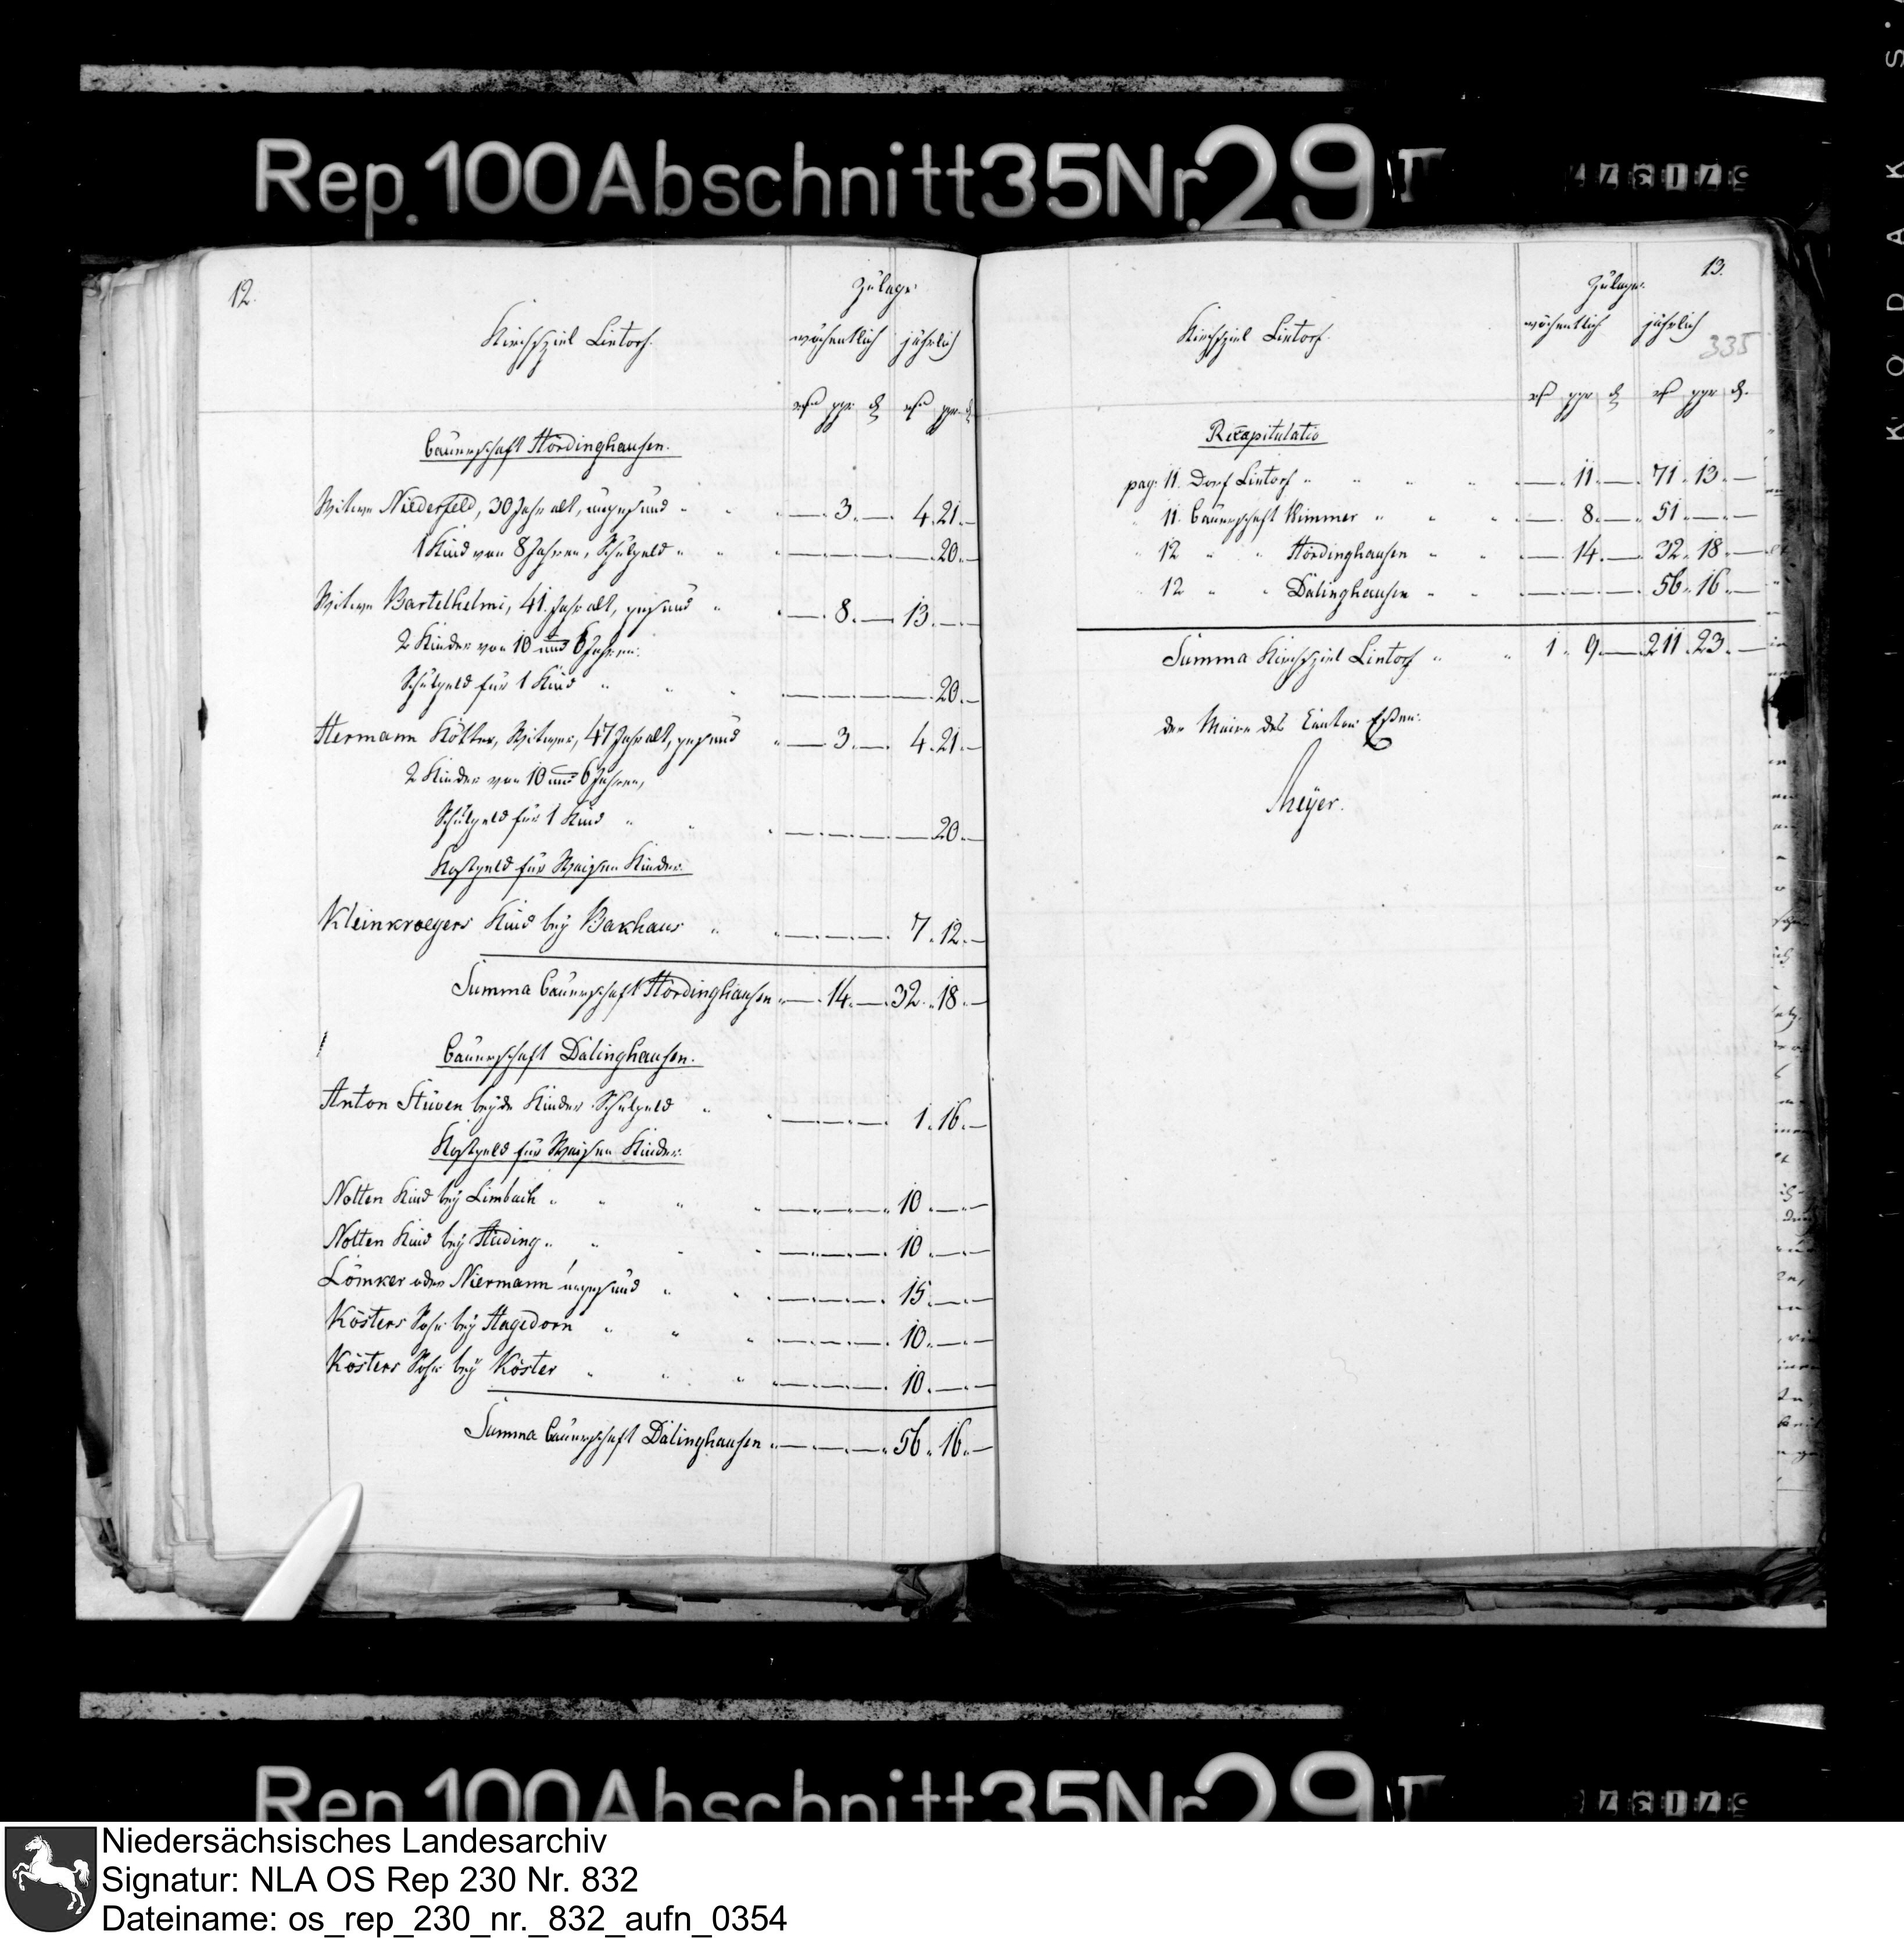 Rep. 100 Abschnitt 35 Nr. 29 I
KODAK S
12.
Zulage
Kirchspiel Lintorf.
wöchentlich jährlich
rth ggr d rth ggr d
Bauerschaft Hördinghausen.
Witwe Niederfeld, 30 Jahr alt, ungesund " " " — 3. — 4. 21. —
1 Kind von 8 Jahren, Schulgeld " " " — — — — 20. —
Witwe Bartelhelmi, 41. Jahr alt, gesund " " — 8. — 13. — —
2 Kinder von 10 und 6 Jahren.
Schulgeld für 1 Kind " " " — — — — 20. —
Hermann Kötter, Witwer, 47 Jahr alt, gesund " — 3. — 4. 21. —
2 Kinder von 10 und 6 Jahren,
Schulgeld für 1 Kind " " " — — — — 20. —
Kostgeld für Waisen Kinder.
Kleinkroegers Kind bey Bakhaus " " — — — 7. 12. —
Summa Bauerschaft Hördinghausen " — 14. — 32. 18. —
Bauerschaft Dälinghausen.
Anton Stüven beyde Kinder Schulgeld " " — — — 1. 16. —
Kostgeld für Waisen Kinder.
Nolten Kind bey Limbach " " " " — — — 10. — —
Nolten Kind bey Hüding " " " " — — — 10. — —
Lömker oder Niermann ungesund " " " — — — 15. — —
Kösters Sohn bey Hagedorn " " " — — — 10. — —
Kösters Sohn bey Köster " " " " — — — 10. — —
Summa Bauerschaft Dälinghausen " — — — 56. 16. —
13.
Zulage.
Kirchspiel Lintorf
wöchentlich jährlich
335
rth ggr d rth ggr d.
Recapitulatio
pag: 11. Dorf Lintorf " " " " — 11. — 71. 13. —
" 11. Bauerschaft Wimmer " " " — 8. — 51. — —
" 12 " " Hördinghausen " " — 14. — 32. 18. —
" 12 " " Dälinghausen " " — — — 56. 16. —
Summa Kirchspiel Lintorf " " 1. 9. — 211. 23. —
der Maire des Canton Essen:
Meyer.
Rep. 100 Abschnitt 35 Nr. 29 I
Niedersächsisches Landesarchiv
Signatur: NLA OS Rep 230 Nr. 832
Dateiname: os_rep_230_nr._832_aufn_0354